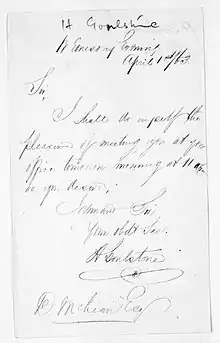 H Goulstine
Wednesday Evening
April 1st /63
Sir,
I shall do myself the
pleasure of meeting you at your
office tomorrow morning at 11 am
as you desire.
I remain Sir,
Your obdt Ser.
H Goulstone
McLean Esq